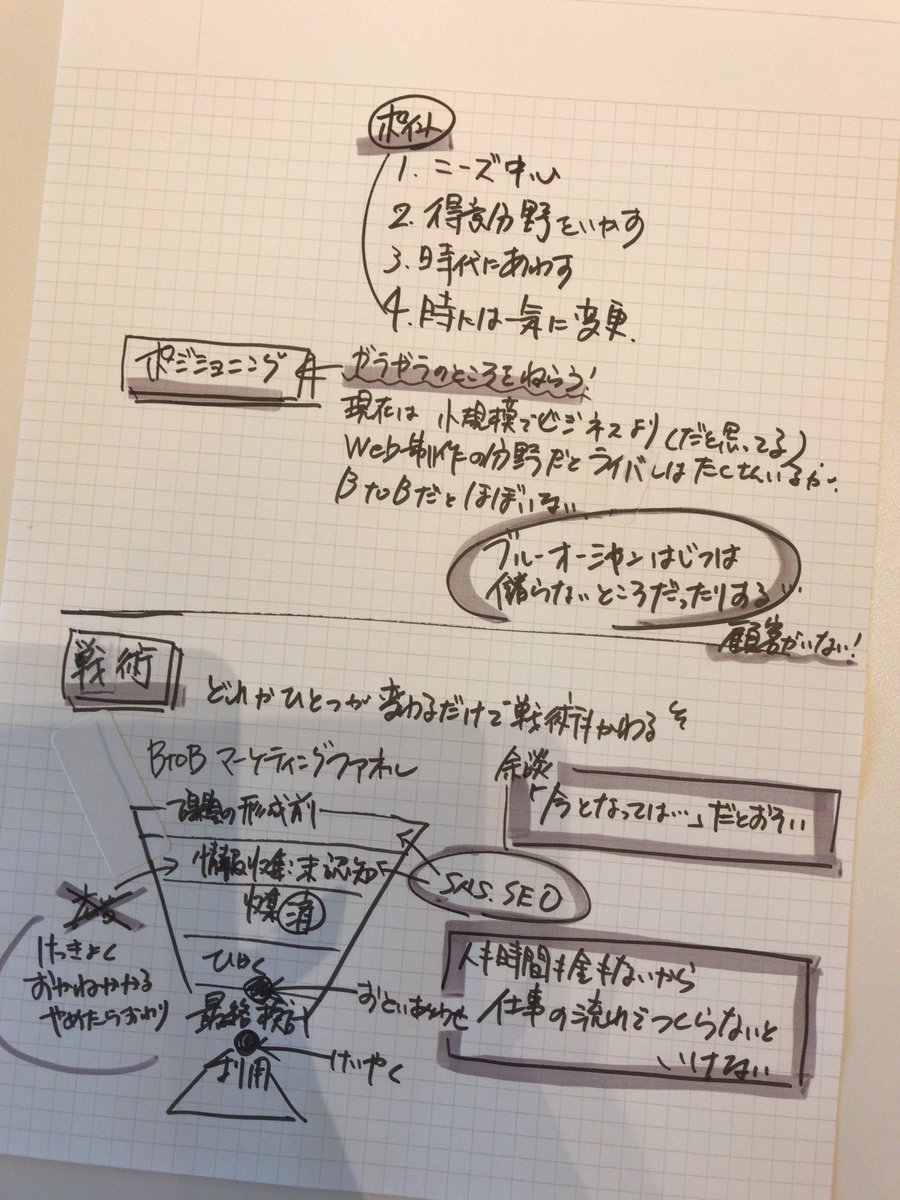 ポイント
1. ニーズ中心
2. 得意分野をいかす
3. 時代にあわす
4. 時には一気に変更.
ポジショニング
ガラガラのところをねらう!
現在は 小規模でビジネスより(だと思ってる)
Web制作の分野だとライバルはたくさんいるが、
BtoBだとほぼいない
ブルーオーシャンはじつは
儲らないところだったりする…
顧客がいない!
戦術
どれかひとつが変わるだけで戦術はかわるぞ
BtoB マーケティングファネル
余談
「今となっては…」だとおそい
課題の形成前
情報収集:未認知
収集 済
SNS. SEO
けっきょく
おかねかかる
やめたらおわり
ひかく
おといあわせ
最終検討
利用
けいやく
人も時間も金もないから
仕事の流れでつくらないと
いけない